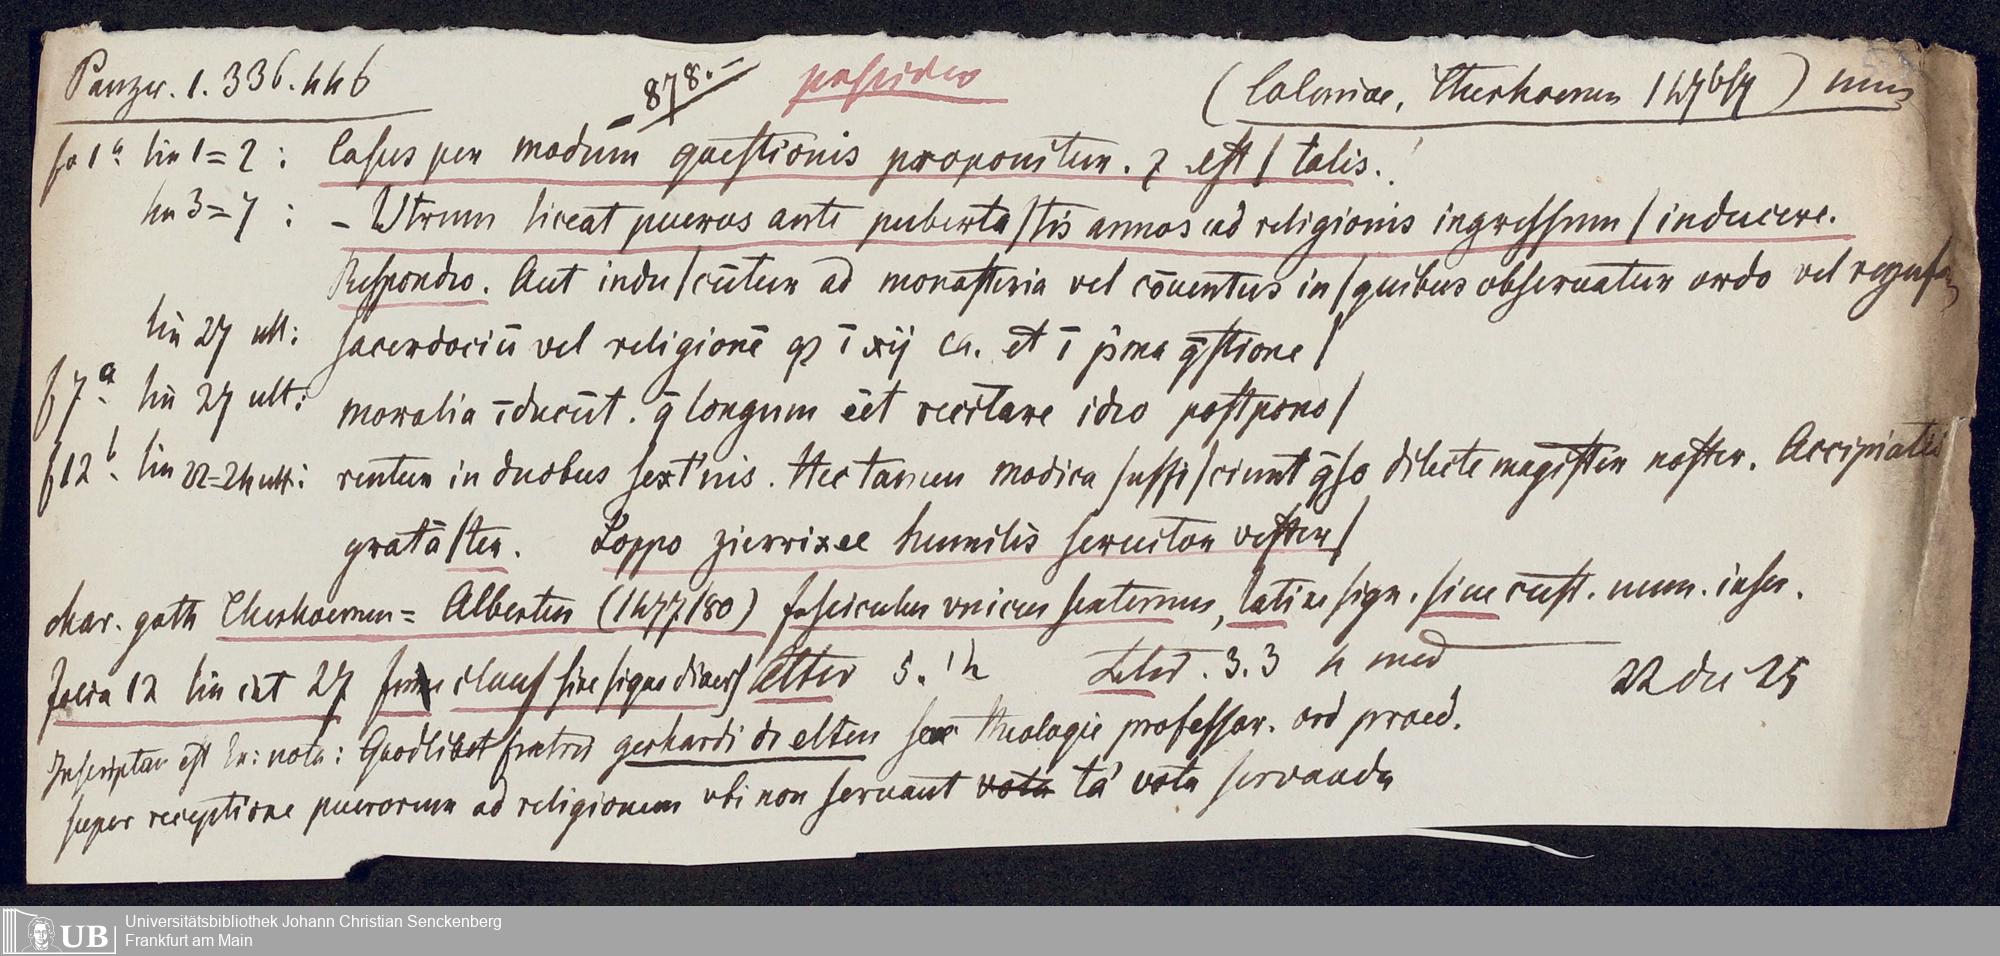 Panzer. 1. 336. 446 878.- possideo (Coloniae, Therhoernen 1476/7)
fo 1a lin 1=2 : Casus per modum quaestionis proponitur. Z est / talis.
lin 3=7 : - Utrum liceat pueros ante puberta/tis annos ad religionis ingressum / inducere.
Respondeo. Aut indu/cūtur ad monasteria vel cōuentus in / quibus obseruatur ordo vel
lin 27 ult: sacerdociū vel religionē qz ī xij ca. et ī p̄ma q̄stione /
f 7a lin 27 ult: moralia īducūt. q̄ longum ēēt recitare ideo postpono /
f 12b lin 22=24 ult: rentur in duobus sext'nis. Hec tamen modica / suffi/ciunt q̄so dilecte magister noster. Accipiatis
gratā/ter. Loppo zierrixee humilis seruitor vester /
char. goth Therhoernen = Alberten (1477/80) fasciculus vnicus sexternus, latine sign. sine cust. num. inser.
Folia 12 lin ext 27 sine signo Elten 5. 14 3. 3 4 med 22 dec 25
Inscriptum est In: nota: Quodlibet fratris gerhardi de elten theologie professor. ord praed.
super receptione puerorum ad religionem vbi non seruant vota tā vota servanda
Universitätsbibliothek Johann Christian Senckenberg
UB Frankfurt am Main